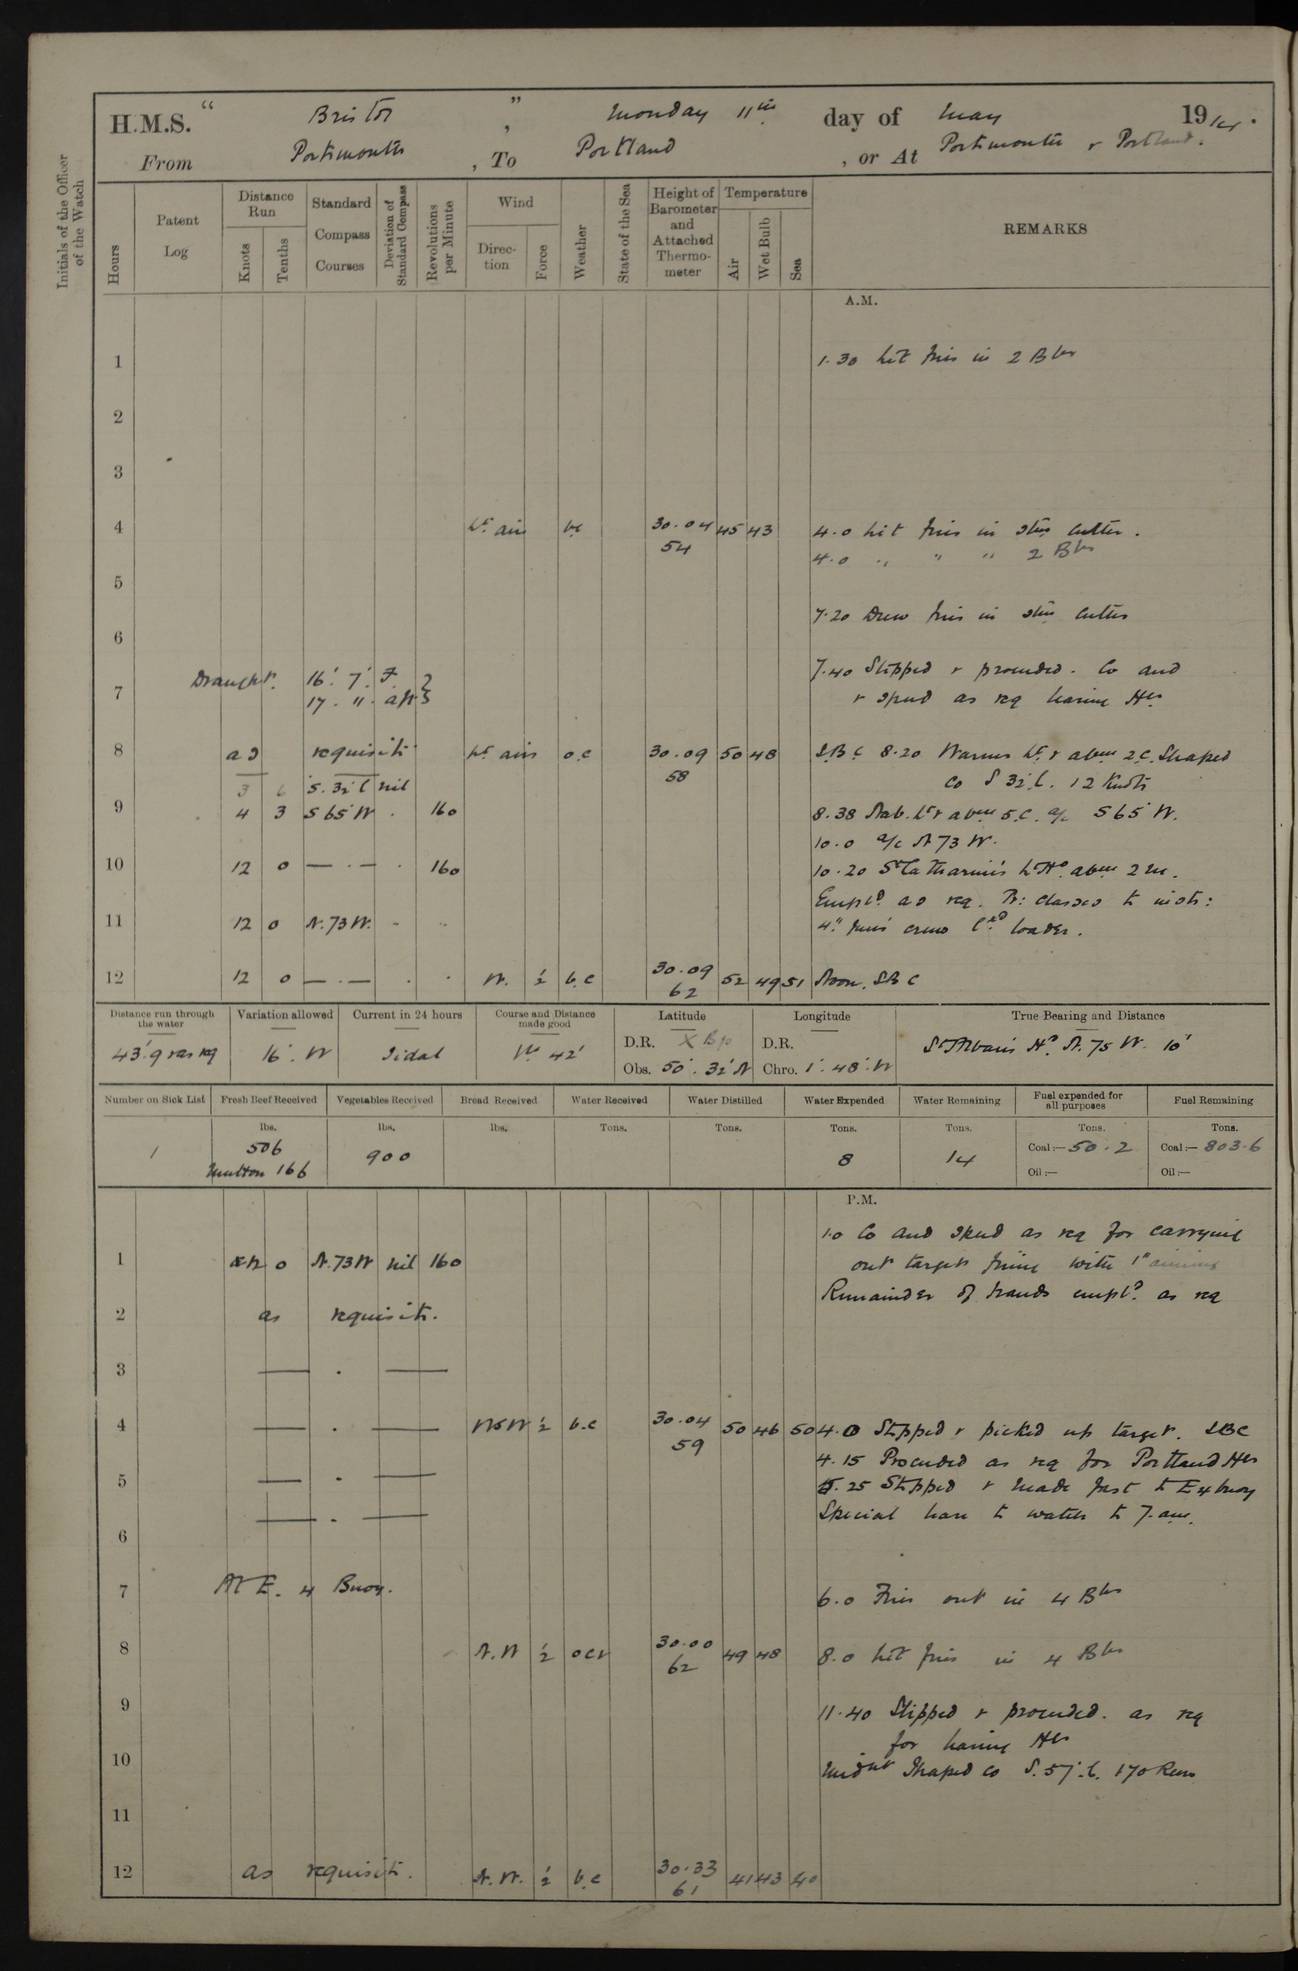 H.M.S. " Bristol " , Monday 11th day of May 1914.
From Portsmouth , To Portland , or At Portsmouth & Portland.
Initials of the Officer of the Watch
Hours
Patent Log
Distance Run
Knots
Tenths
Standard Compass Courses
Deviation of Standard Compass
Revolutions per Minute
Wind
Direction
Force
Weather
State of the Sea
Height of Barometer and Attached Thermometer
Temperature
Air
Wet Bulb
Sea
REMARKS
A.M.
1 1.30 Lit fires in 2 Blrs
2
3
4 Lt airs bc 30.04 45 43 4.0 Lit fires in stm cutter.
54 4.0 " " " 2 Blrs
5
7.20 Drew fires in stm cutter
6
Draught. 16' 7" F 7.40 Slipped & proceeded. Co and
7 17 . " . aft & speed as req leaving Hr
8 as requisite Lt airs o.c 30.09 50 48 S.B.C 8.20 Warner Lt V abm 2 C. Shaped
3 6 S. 32 E nil 58 Co S 32 E. 12 Knots
9 4 3 S 65 W . 160 8.38 Nab. Lt V abm 5.C. a/c S 65 W.
10.0 a/c N 73 W.
10 12 0 — . — . 160 10.20 St Catharine's Lt Ho abm 2 m.
Empld as req.
11 12 0 N. 73 W. - .. 4" guns crews
12 12 0 — . — . . W. ½ b.c 30.09 52 49 51 Noon. S B C
62
Distance run through the water
Variation allowed
Current in 24 hours
Course and Distance made good
Latitude
Longitude
True Bearing and Distance
43'.9 vas req 16° W Tidal 42' D.R. Obs. 50° . 32' N D.R. Chro. 1° . 48' W St Albans Hd N. 75 W. 10'
Number on Sick List
Fresh Beef Received
Vegetables Received
Bread Received
Water Received
Water Distilled
Water Expended
Water Remaining
Fuel expended for all purposes
Fuel Remaining
lbs. lbs. lbs. Tons. Tons. Tons. Tons. Tons. Tons.
1 506 900 8 14 Coal:— 50.2 Coal:— 803.6
Mutton 166 Oil:— Oil:—
P.M.
1.0 Co and speed as req for carrying
1 12 0 N. 73 W nil 160 out target firing with 1" aiming
Remainder of hands empld as req
2 as requisite.
3 — . —
4 — . — WSW ½ b.c 30.04 50 46 50 4.0 Stopped & picked up target. SBC
59
4.15 Proceeded as req for Portland Hr
5 — . — 5.25 Stopped & made fast to E4 buoy
— . — Special leave to watch to 7 am.
6
7 At E. 4 Buoy. 6.0 Fires out in 4 Blrs
8 N.W ½ ocr 30.00 49 48 8.0 Lit fires in 4 Blrs
62
9 11.40 Slipped & proceeded. as req
for leaving Hr
10 Midnt Shaped Co S. 57 E. 170 Revs
11
12 as requisite. N.W. ½ b.c 30.33 41 43 40
61